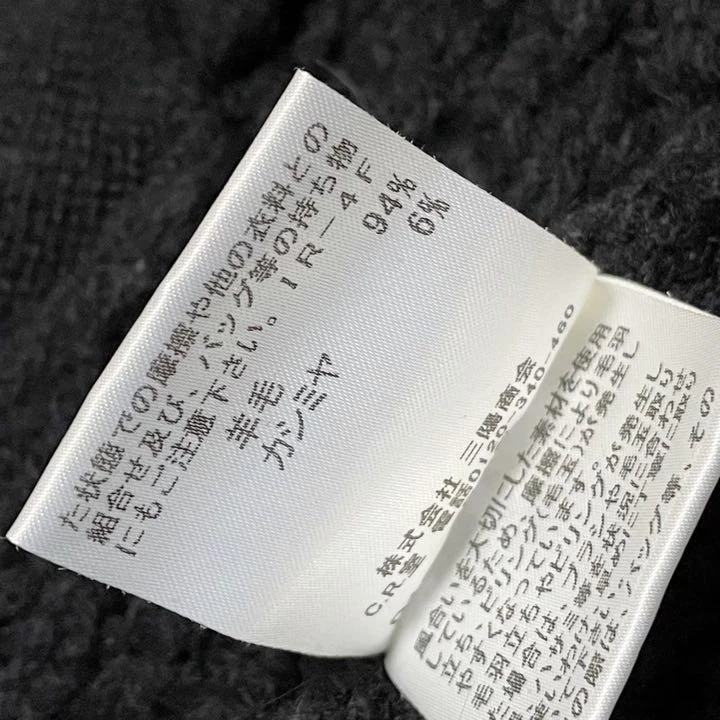 た状態での摩擦や他の衣料との
組合せ及び、バッグ等の持ち物
にもご注意下さい。IR-4F
羊毛 94%
カシミヤ 6%
株式会社 三陽商会
C.R.室 電話0120-340-460
風合いを大切にした素材を使用
しているため、摩擦により毛羽
立ち、ピリング(毛玉)が発生し
やすくなっています。
毛羽立ちやピリングが発生し
た場合は、ブラシや毛玉取り